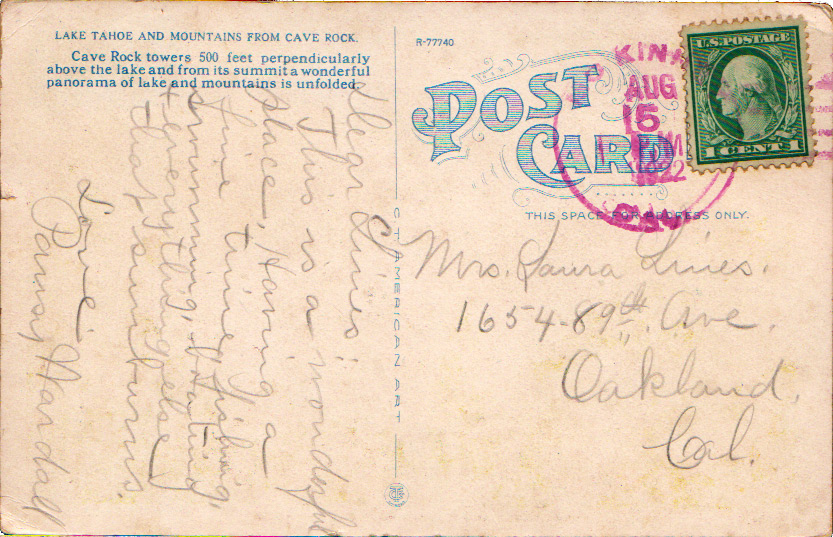 LAKE TAHOE AND MOUNTAINS FROM CAVE ROCK.
Cave Rock towers 500 feet perpendicularly
above the lake and from its summit a wonderful
panorama of lake and mountains is unfolded.
Dear Lines;
This is a wonderful
place. Having a
fine time fishing,
swimming, boating,
& everything else
that
Love,
Pansy
R-77740
POST
CARD
THIS SPACE FOR ADDRESS ONLY.
C T AMERICAN ART
AUG
U.S. POSTAGE
1 CENT 1
Mrs. Laura Lines.
1654-89th Ave.
Oakland,
Cal.